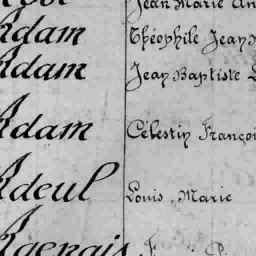 Jean Marie
Adam Théophile Jean
Adam Jean Baptiste
Adam Célestin Françoi
Adeul Louis, Marie